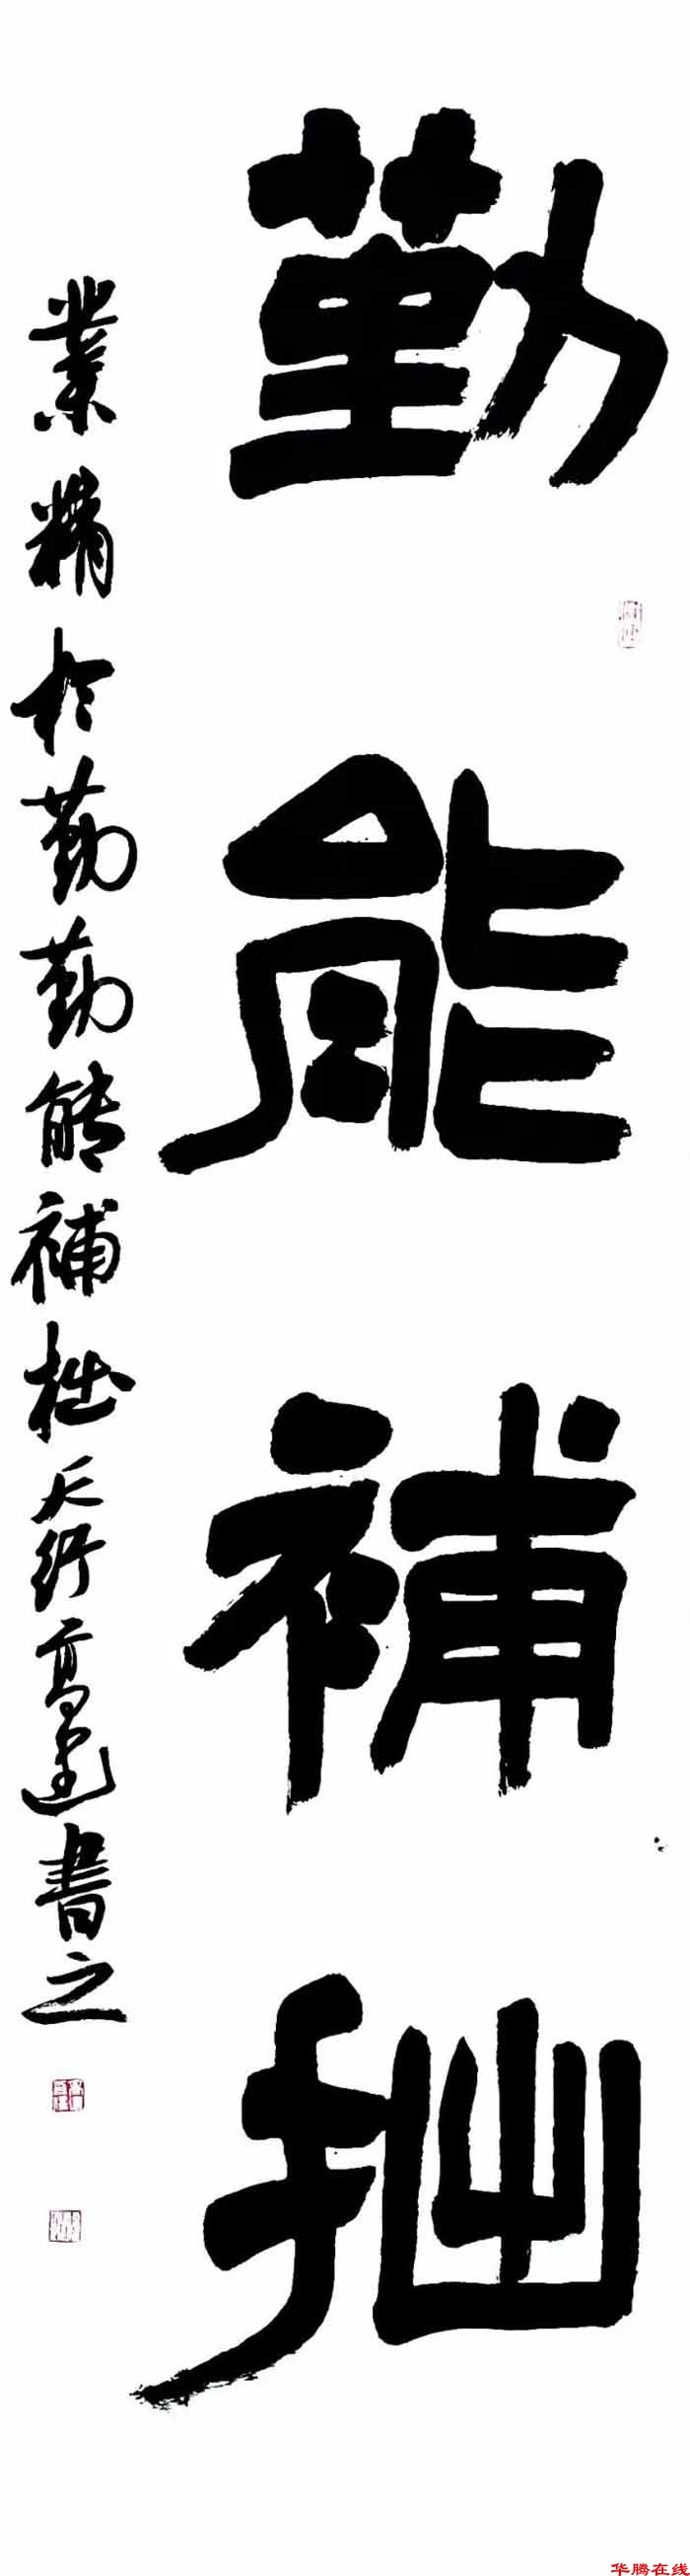 勤能補拙
業精於勤勤能補拙天行高建書之
华腾在线